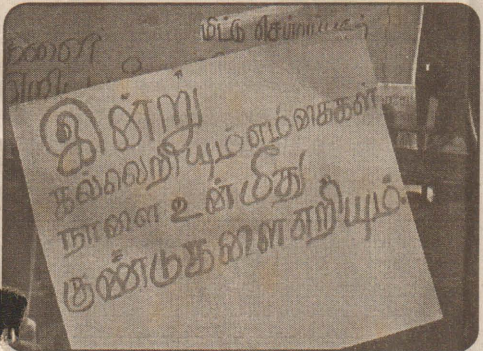 மிட்டு
களை
இன்று
கல்லெறியும் எம்கைகள்
நாளை உன் மீது
குண்டுகளை எறியும்.